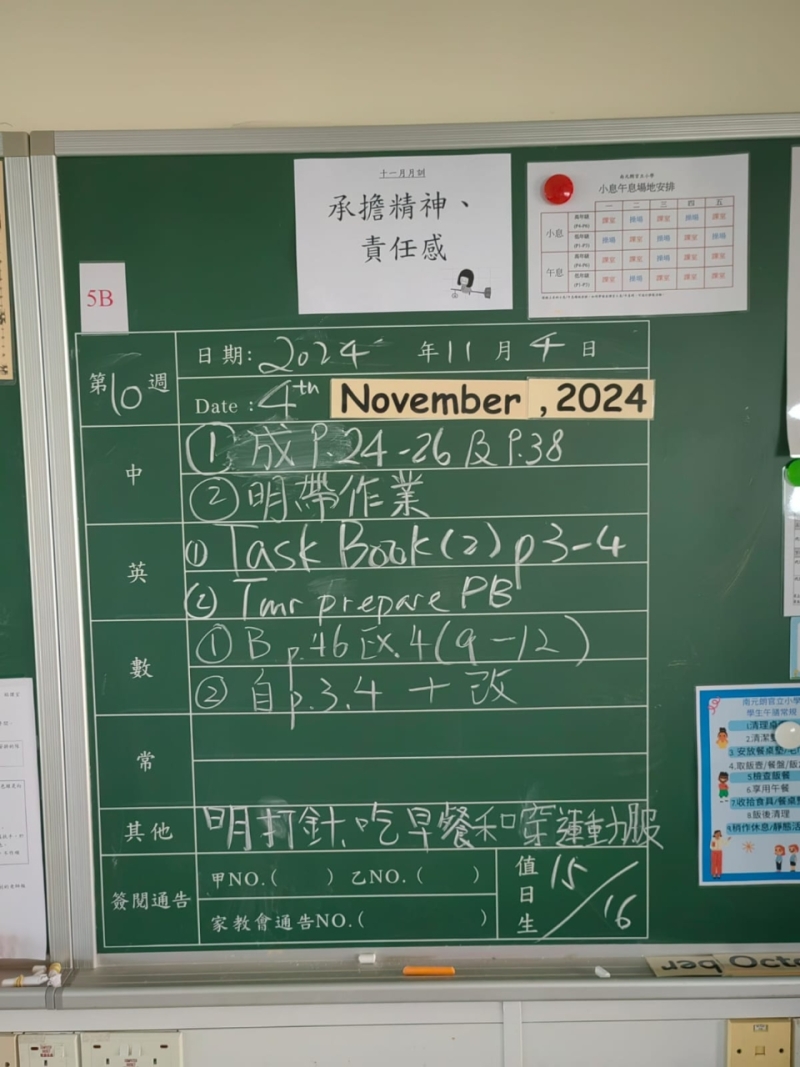 十一月月訓
承擔精神、
責任感
南元朗官立小學
小息午息場地安排
一 二 三 四 五
小息
高年級 (P4-P6) 課室 操場 課室 操場 課室
低年級 (P1-P3) 操場 課室 操場 課室 操場
午息
高年級 (P4-P6) 課室 課室 操場 課室 課室
低年級 (P1-P3) 課室 操場 課室 課室 課室
5B
第10週
日期: 2024 年11月4日
Date : 4th November , 2024
中
① 成 P.24-26 及 P.38
② 明帶作業
英
① Task Book(2) p3-4
② Tmr prepare PB
數
① B p.46 Ex.4(9-12)
② 自 p.3.4 + 改
常
其他
明打針、吃早餐和穿運動服
簽閱通告
甲NO.( ) 乙NO.( )
家教會通告NO.( )
值日生 15/16
南元朗官立小學
學生午膳常規
1清理桌
2.清潔
3.安放餐桌墊/毛
4.取飯壺/餐盤/飯
5檢查飯餐
6.享用午餐
7.收拾食具/餐桌
8.飯後清理
9.稍作休息/靜態活
Octo
ber